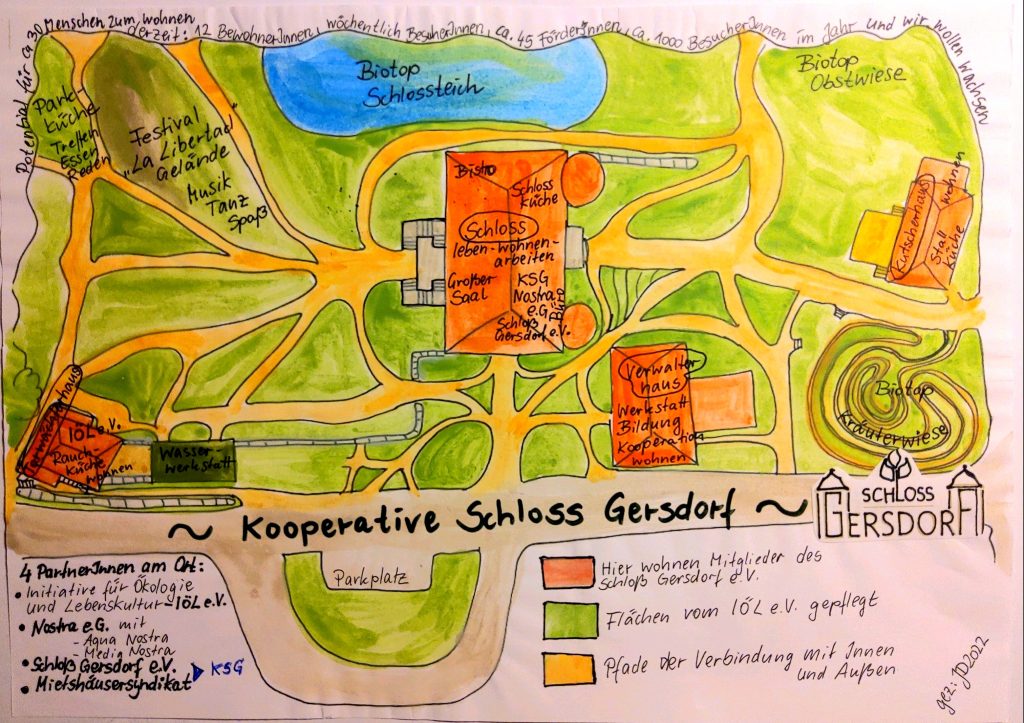 Potential für ca 30 Menschen zum wohnen
derzeit: 12 BewohnerInnen, wöchentlich BesucherInnen, ca. 45 FörderInnen, ca. 1000 BesucherInnen im Jahr und wir wollen wachsen
Park-
Küche
Treffen
Essen
Reden
Festival
"La Libertad"
Gelände
Musik
Tanz
Spaß
Biotop
Schlossteich
Biotop
Obstwiese
Bistro
Schloss
küche
Schloss
leben-wohnen-
arbeiten
Großer
Saal
KSG
Nostra
e.G.
Büro
Schloß
Gersdorf e.V.
Kutscherhaus
wohnen
Stall
Küche
Verwalter
haus
Werkstatt
Bildung
Kooperation
wohnen
Biotop
Kräuterwiese
IÖL e.V.
Rauch-
Küche
wohnen
Wasser-
werkstatt
~ Kooperative Schloss Gersdorf ~
SCHLOSS
GERSDORF
Parkplatz
4 PartnerInnen am Ort:
• Initiative für Ökologie
und Lebenskultur - IÖL e.V.
• Nostra e.G. mit
- Aqua Nostra
- Media Nostra
• Schloß Gersdorf e.V.
• Mietshäusersyndikat
KSG
Hier wohnen Mitglieder des
Schloß Gersdorf e.V.
Flächen vom IÖL e.V. gepflegt
Pfade der Verbindung mit Innen
und Außen
gez: JD2022